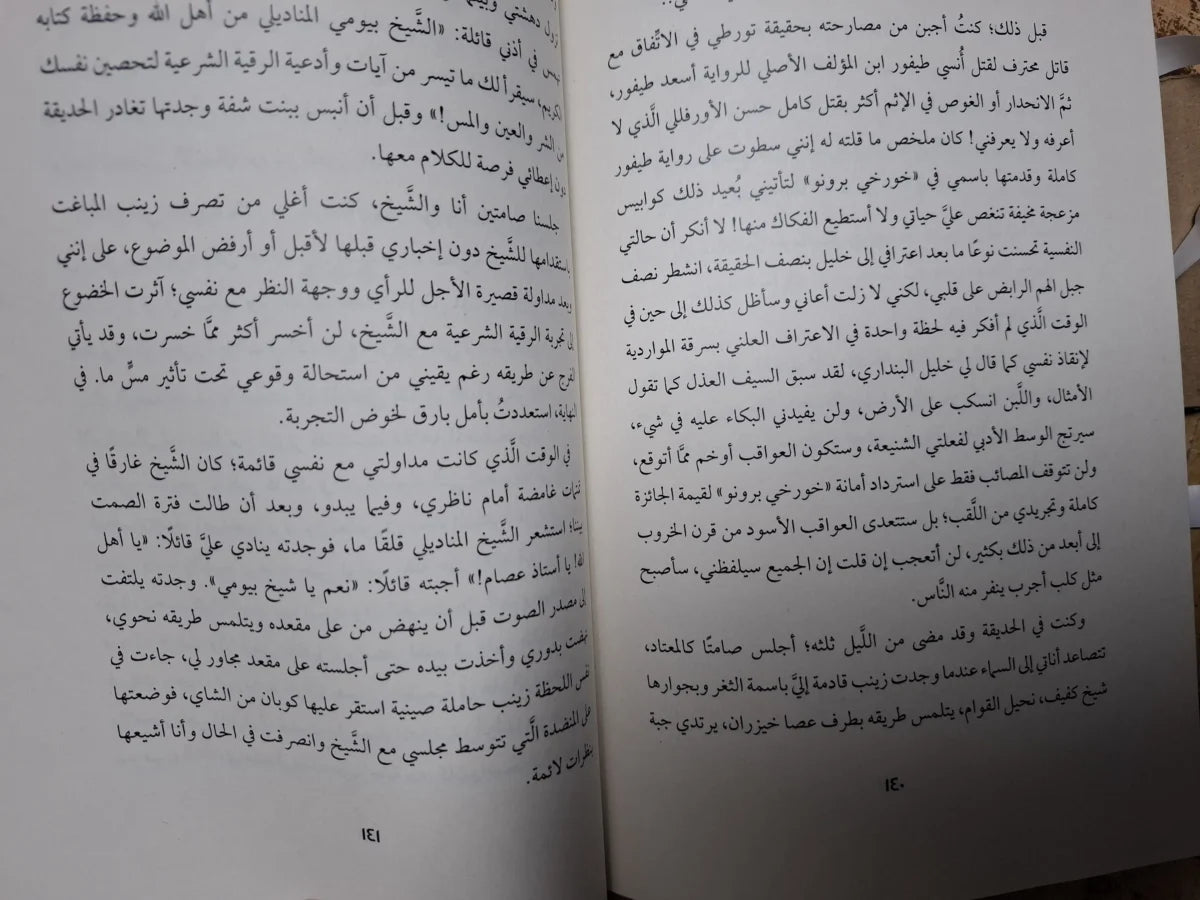 قبل ذلك؛ كنتُ أجبن من مصارحته بحقيقة تورطي في الاتِّفاق مع
قاتل محترف لقتل أُنسي طيفور ابن المؤلف الأصلي للرواية أسعد طيفور،
ثمَّ الانحدار أو الغوص في الإثم أكثر بقتل كامل حسن الأورفللي الَّذي لا
أعرفه ولا يعرفني! كان ملخص ما قلته له إنني سطوت على رواية طيفور
كاملة وقدمتها باسمي في «خورخي برونو» لتأتيني بُعيد ذلك كوابيس
مزعجة مخيفة تنغص عليَّ حياتي ولا أستطيع الفكاك منها! لا أنكر أن حالتي
النفسية تحسنت نوعًا ما بعد اعترافي إلى خليل بنصف الحقيقة، انشطر نصف
جبل الهم الرابض على قلبي، لكني لا زلت أعاني وسأظل كذلك إلى حين في
الوقت الَّذي لم أفكر فيه لحظة واحدة في الاعتراف العلني بسرقة المواردية
لإنقاذ نفسي كما قال لي خليل البنداري، لقد سبق السيف العذل كما تقول
الأمثال، واللَّبن انسكب على الأرض، ولن يفيدني البكاء عليه في شيء،
سيرتج الوسط الأدبي لفعلتي الشنيعة، وستكون العواقب أوخم ممَّا أتوقع،
ولن تتوقف المصائب فقط على استرداد أمانة «خورخي برونو» لقيمة الجائزة
كاملة وتجريدي من اللَّقب؛ بل ستتعدى العواقب الأسود من قرن الخروب
إلى أبعد من ذلك بكثير، لن أتعجب إن قلت إن الجميع سيلفظني، سأصبح
مثل كلب أجرب ينفر منه النَّاس.
وكنت في الحديقة وقد مضى من اللَّيل ثلثه؛ أجلس صامتًا كالمعتاد،
تتصاعد أناتي إلى السماء عندما وجدت زينب قادمة إليَّ باسمة الثغر وبجوارها
شيخ كفيف، نحيل القوام، يتلمس طريقه بطرف عصا خيزران، يرتدي جبة
١٤٠
تزول دهشتي
تهمس في أذني قائلة: «الشَّيخ بيومي المناديلي من أهل الله وحفظة كتابه
الكريم، سيقرأ لك ما تيسر من آيات وأدعية الرقية الشرعية لتحصين نفسك
من الشر والعين والمس!» وقبل أن أنبس ببنت شفة وجدتها تغادر الحديقة
دون إعطائي فرصة للكلام معها.
جلسنا صامتين أنا والشَّيخ، كنت أغلي من تصرف زينب المباغت
باستقدامها للشَّيخ دون إخباري قبلها لأقبل أو أرفض الموضوع، على إنني
وبعد مداولة قصيرة الأجل للرأي ووجهة النظر مع نفسي؛ آثرت الخضوع
إلى تجربة الرقية الشرعية مع الشَّيخ، لن أخسر أكثر ممَّا خسرت، وقد يأتي
الفرج عن طريقه رغم يقيني من استحالة وقوعي تحت تأثير مسٍّ ما. في
النهاية، استعددتُ بأمل بارق لخوض التجربة.
في الوقت الَّذي كانت مداولتي مع نفسي قائمة؛ كان الشَّيخ غارقًا في
تمتمات غامضة أمام ناظري، وفيما يبدو، وبعد أن طالت فترة الصمت
بيننا؛ استشعر الشَّيخ المناديلي قلقًا ما، فوجدته ينادي عليَّ قائلًا: «يا أهل
الله! يا أستاذ عصام!» أجبته قائلًا: «نعم يا شيخ بيومي». وجدته يلتفت
إلى مصدر الصوت قبل أن ينهض من على مقعده ويتلمس طريقه نحوي،
نهضت بدوري وأخذت بيده حتى أجلسته على مقعد مجاور لي، جاءت في
نفس اللحظة زينب حاملة صينية استقر عليها كوبان من الشاي، فوضعتها
على المنضدة الَّتي تتوسط مجلسي مع الشَّيخ وانصرفت في الحال وأنا أشيعها
بنظرات لائمة.
١٤١